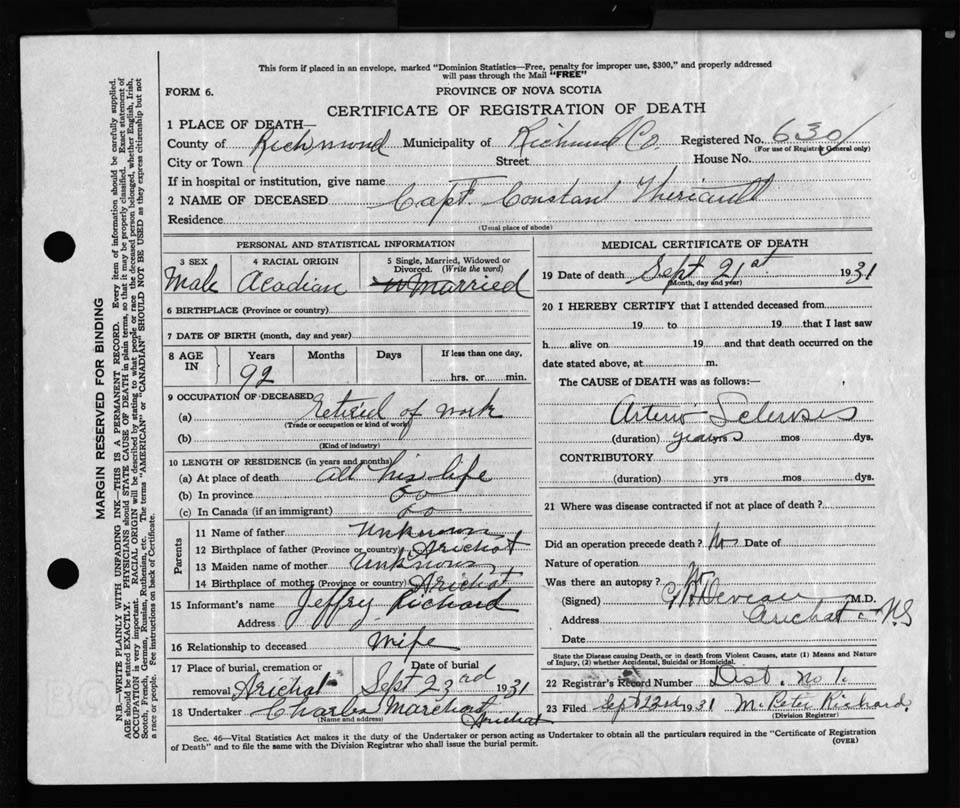 This form if placed in an envelope, marked "Dominion Statistics—Free, penalty for improper use, $300," and properly addressed
will pass through the Mail "FREE"
FORM 6.
PROVINCE OF NOVA SCOTIA
CERTIFICATE OF REGISTRATION OF DEATH
1 PLACE OF DEATH—
County of Richmond Municipality of Richmond Co Registered No. 6301
(For use of Registrar General only)
City or Town Street House No.
If in hospital or institution, give name
2 NAME OF DECEASED Capt. Constant Theriault
Residence
(Usual place of abode)
PERSONAL AND STATISTICAL INFORMATION
3 SEX 4 RACIAL ORIGIN 5 Single, Married, Widowed or
Divorced. (Write the word)
Male Acadian Married
6 BIRTHPLACE (Province or country)
7 DATE OF BIRTH (month, day and year)
8 AGE IN Years Months Days If less than one day,
92 hrs. or min.
9 OCCUPATION OF DECEASED
(a) Retired of work
(Trade or occupation or kind of work)
(b)
(Kind of industry)
10 LENGTH OF RESIDENCE (in years and months)
(a) At place of death all his life
(b) In province Do
(c) In Canada (if an immigrant) Do
Parents
11 Name of father Unknown
12 Birthplace of father (Province or country) Arichat
13 Maiden name of mother Unknown
14 Birthplace of mother (Province or country) Arichat
15 Informant's name Jeffry Richard
Address
16 Relationship to deceased Wife
17 Place of burial, cremation or Date of burial
removal Arichat Sept 23rd 1931
18 Undertaker Charles Marchat Arichat
(Name and address)
MEDICAL CERTIFICATE OF DEATH
19 Date of death Sept 21st 1931
(Month, day and year)
20 I HEREBY CERTIFY that I attended deceased from
19 to 19 that I last saw
h alive on 19 and that death occurred on the
date stated above, at m.
The CAUSE of DEATH was as follows:—
Arterio Sclerosis
(duration) years yrs mos dys.
CONTRIBUTORY
(duration) yrs mos dys.
21 Where was disease contracted if not at place of death?
Did an operation precede death? No Date of
Nature of operation
Was there an autopsy? No
(Signed) Deveau M.D.
Address Arichat N.S
Date
State the Disease causing Death, or in death from Violent Causes, state (1) Means and Nature
of Injury, (2) whether Accidental, Suicidal or Homicidal.
22 Registrar's Record Number Dist. no 1.
23 Filed Sept 1931 M. Peter Richard,
(Division Registrar)
Sec. 46—Vital Statistics Act makes it the duty of the Undertaker or person acting as Undertaker to obtain all the particulars required in the "Certificate of Registration
of Death" and to file the same with the Division Registrar who shall issue the burial permit.
(OVER)
MARGIN RESERVED FOR BINDING
N.B.—WRITE PLAINLY WITH UNFADING INK—THIS IS A PERMANENT RECORD. Every item of information should be carefully supplied.
AGE should be stated EXACTLY. PHYSICIANS should STATE CAUSE OF DEATH in plain terms, so that it may be properly classified. Exact statement of
OCCUPATION is very important. RACIAL ORIGIN will be described by stating to what people or race the deceased person belonged, whether English, Irish,
Scotch, French, German, Russian, Ruthenian, etc. The terms "AMERICAN" or "CANADIAN" SHOULD NOT BE USED as they express citizenship but not
a race or people. See instructions on back of Certificate.